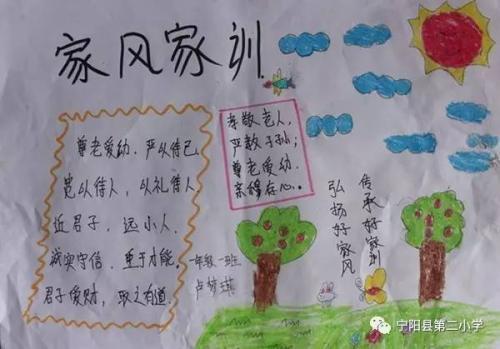 家风家训
尊老爱幼.严以待己
宽以待人,以礼待人
近君子,远小人.
诚实守信.重于才能.
君子爱财,取之有道.
孝敬老人,
严教子孙;
尊老爱幼.
亲穆存心.
传承好家训
弘扬好家风
一年级一班
宁阳县第二小学